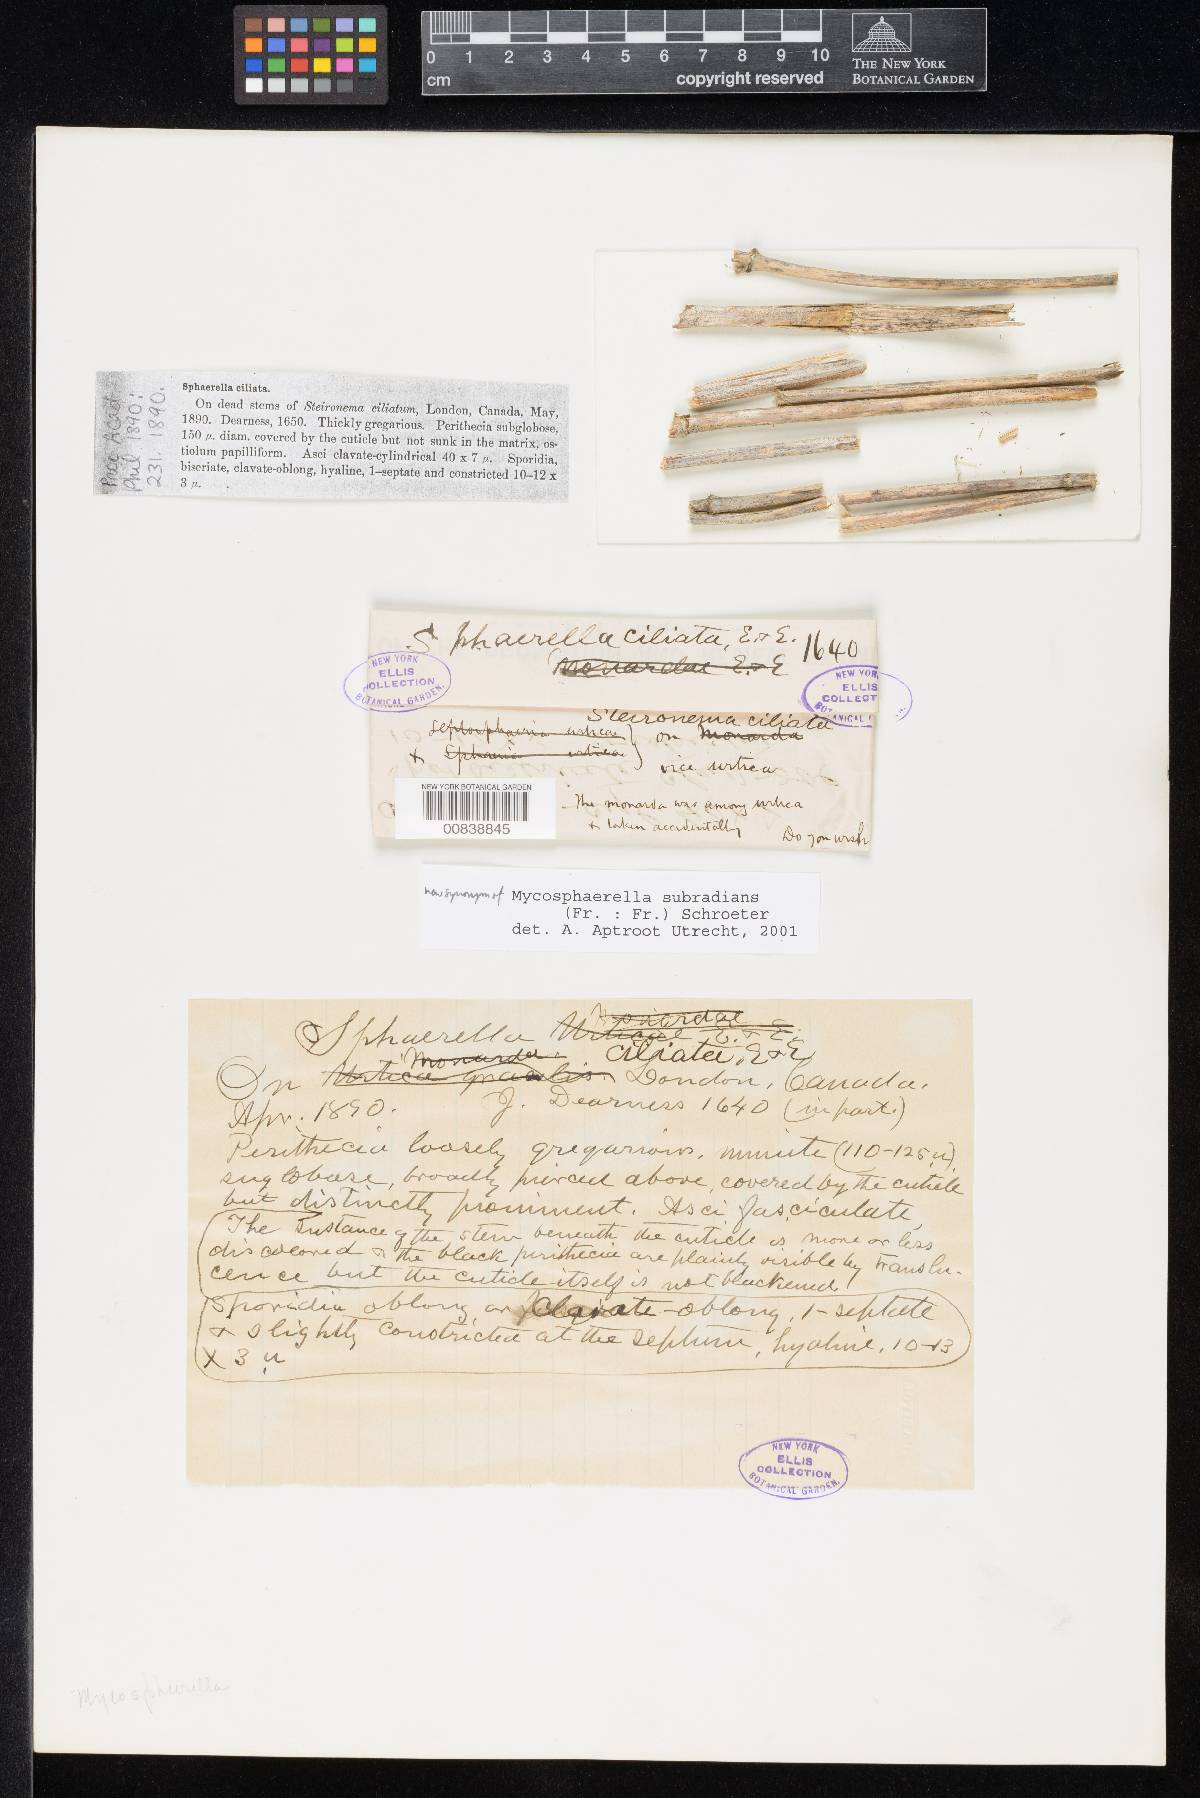 0 1 2 3 4 5 6 7 8 9 10
cm
copyright reserved
THE NEW YORK
BOTANICAL GARDEN
Proc. Acad.
Phil 1890:
231. 1890.
Sphaerella ciliata.
On dead stems of Steironema ciliatum, London, Canada, May,
1890. Dearness, 1650. Thickly gregarious. Perithecia subglobose,
150 μ. diam. covered by the cuticle but not sunk in the matrix, os-
tiolum papilliform. Asci clavate-cylindrical 40 x 7 μ. Sporidia,
biseriate, clavate-oblong, hyaline, 1-septate and constricted 10-12 x
3 μ.
Sphaerella ciliata, E. & E. 1640
Monardae E. & E
NEW YORK
ELLIS
COLLECTION
BOTANICAL GARDEN.
NEW YORK
ELLIS
COLLECT
BOTANICAL
Steironema ciliata
Septosphaeria urtica } on Monarda
& Sphaeria urtica } vice urtica
NEW YORK BOTANICAL GARDEN
00838845
The monarda was among urtica
& taken accidentally
Do you wish
new synonym of Mycosphaerella subradians
(Fr. : Fr.) Schroeter
det. A. Aptroot Utrecht, 2001
Monardae
Sphaerella Urticae E. & E.
ciliata, E & E
Monarda
On Urtica gracilis. London, Canada.
Apr. 1890. J. Dearness 1640 (in part.)
Perithecia loosely gregarious, minute (110-125 u)
suglobose, broadly pierced above, covered by the cuticle
but distinctly prominent. Asci fasciculate,
(The substance of the stem beneath the cuticle is more or less
discolored & the black perithecia are plainly visible by translu-
cence but the cuticle itself is not blackened)
Sporidia oblong or clavate-oblong, 1-septate
& slightly constricted at the septum, hyaline, 10-13
x 3 u
NEW YORK
ELLIS
COLLECTION
BOTANICAL GARDEN.
Mycosphaerella